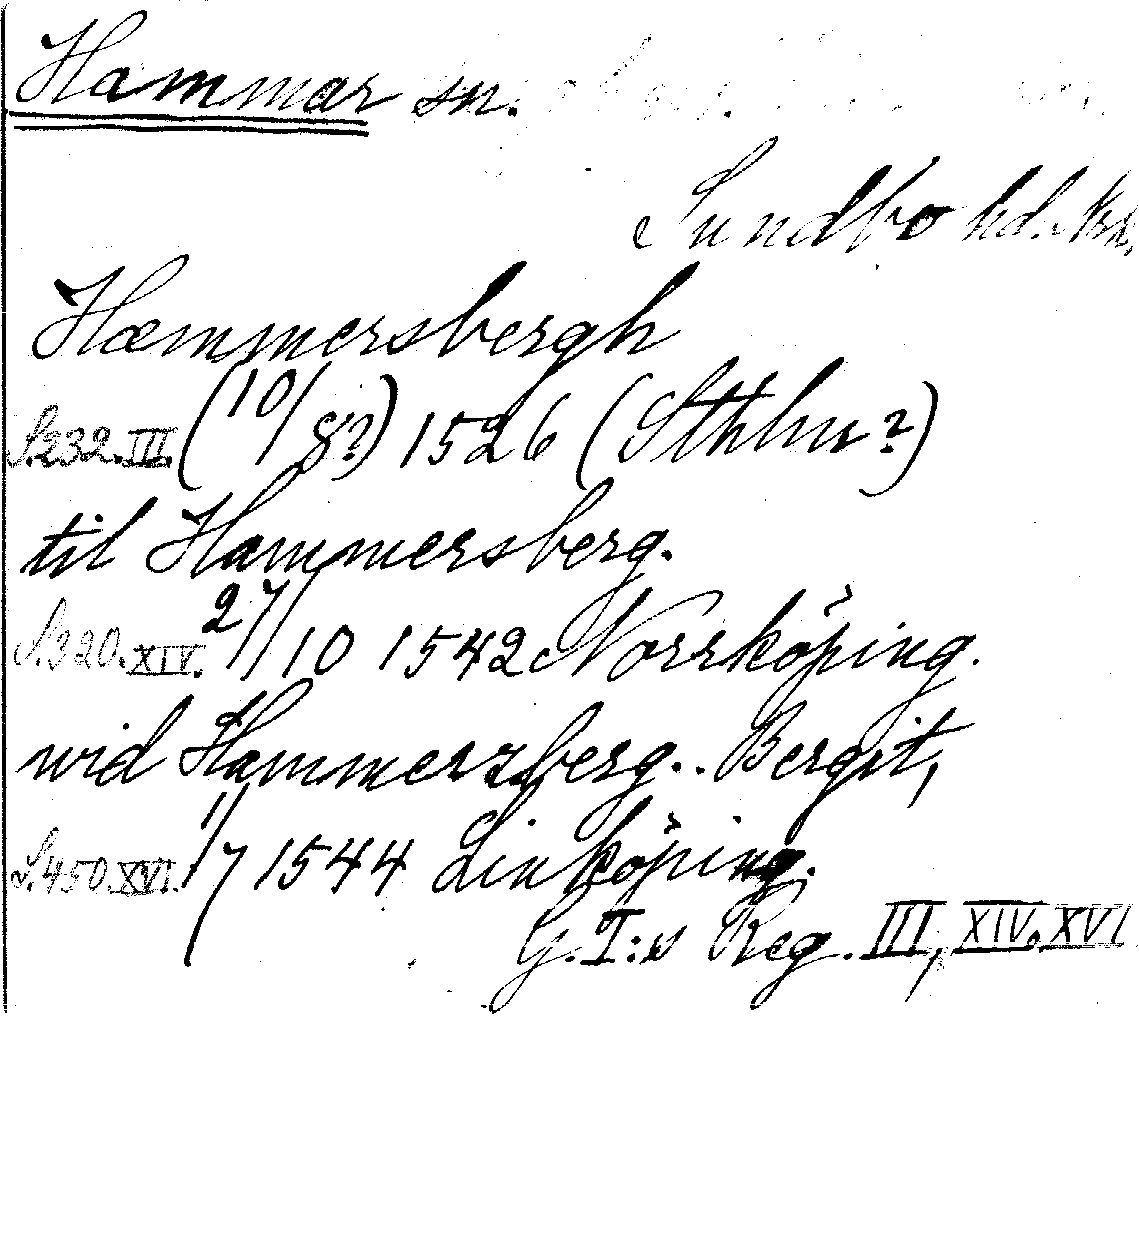 Hammar sn.
Sundbo hd.
Hæmmersbergh
S.232.III. (10/8?) 1526 (Sthlm?)
til Hammersberg.
S.320.XIV. 27/10 1542 Norrköping.
wid Hammerszberg.. Bergit,
S.450.XVI. 1/7 1544 Linköping.
G.I:s Reg. III, XIV. XVI